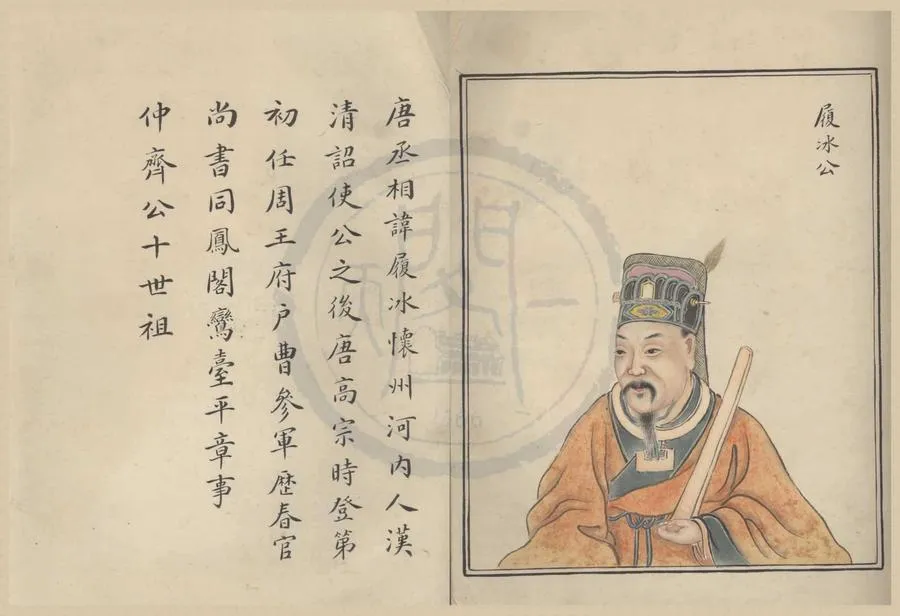 履冰公
唐丞相諱履冰懷州河内人漢
清詔使公之後唐高宗時登第
初任周王府戶曹參軍歷春官
尚書同鳳閣鸞臺平章事
仲齊公十世祖